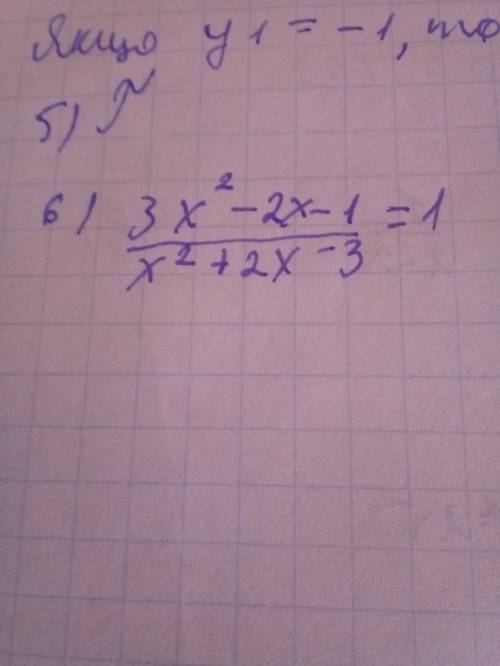 Якщо y1 = -1, то
5)
6) 3x² - 2x - 1 = 1
x² + 2x - 3